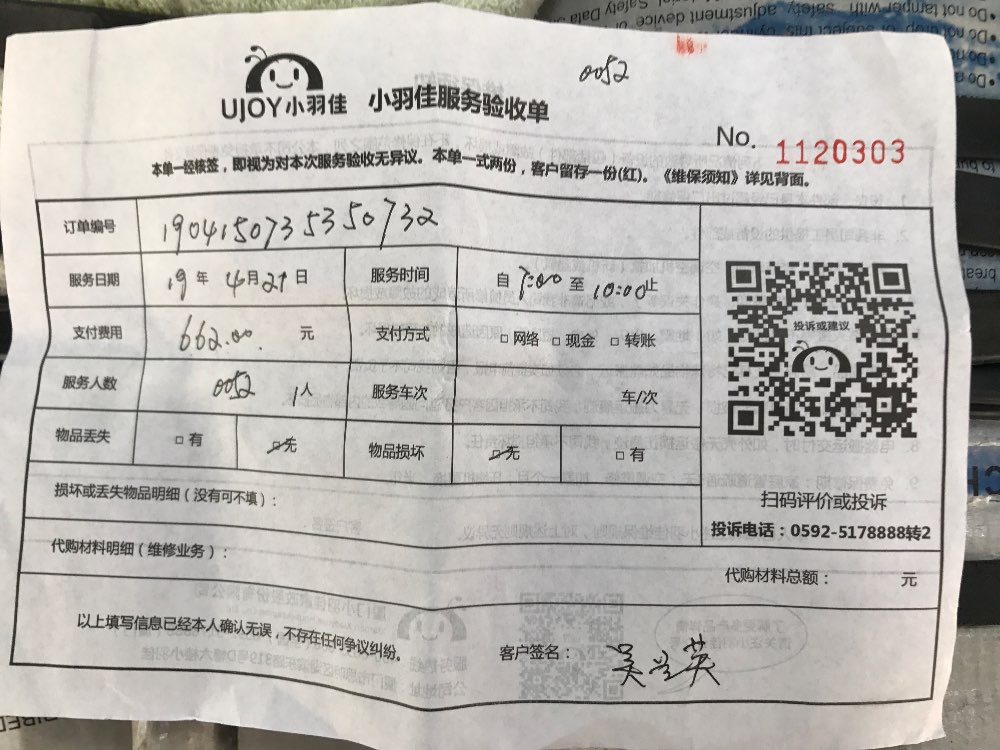 0052
UJOY小羽佳 小羽佳服务验收单
No. 1120303
本单一经核签，即视为对本次服务验收无异议。本单一式两份，客户留存一份(红)。《维保须知》详见背面。
订单编号 19041507353 50732
服务日期 19 年 4月21日 服务时间 自 7:00 至 10:00止
支付费用 662.00 元 支付方式 □ 网络 □ 现金 □ 转账
服务人数 0052 1人 服务车次 车/次
物品丢失 □ 有 □ 无 物品损坏 □ 无 □ 有
投诉或建议
扫码评价或投诉
投诉电话：0592-5178888转2
损坏或丢失物品明细（没有可不填）：
代购材料明细（维修业务）：
代购材料总额： 元
以上填写信息已经本人确认无误，不存在任何争议纠纷。
客户签名：